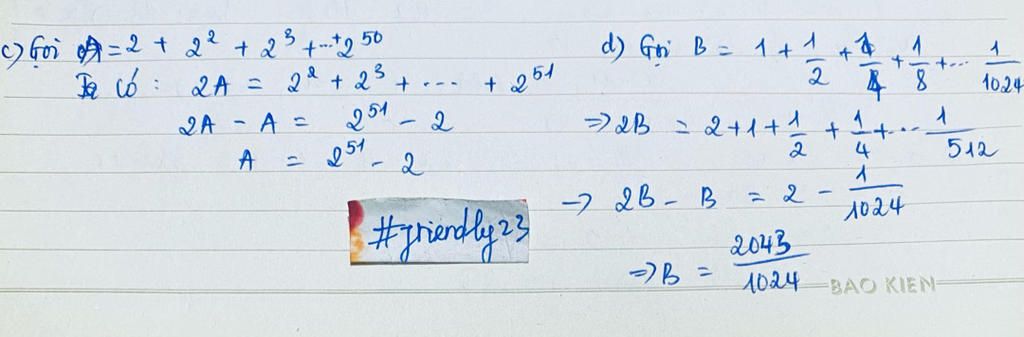 c) Gọi A = 2 + 2² + 2³ + ... + 2⁵⁰
Ta có : 2A = 2² + 2³ + ... + 2⁵¹
2A - A = 2⁵¹ - 2
A = 2⁵¹ - 2
d) Gọi B = 1 + 1/2 + 1/4 + 1/8 + ... 1/1024
=> 2B = 2 + 1 + 1/2 + 1/4 + ... 1/512
-> 2B - B = 2 - 1/1024
=> B = 2043/1024
#friendly23
BAO KIEN